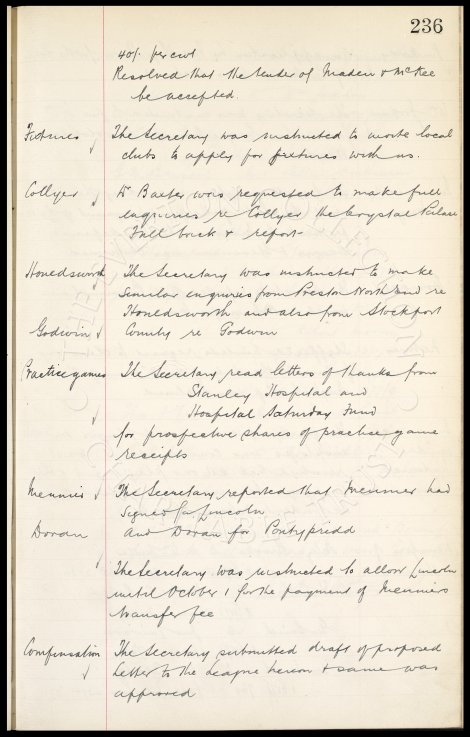 236
40/. per cwt
Resolved that the tender of Maden & McKee
be accepted.
Fixtures The Secretary was instructed to write local
clubs to apply for fixtures with us.
Collyer Dr Baxter was requested to make full
enquiries re Collyer the Crystal Palace
Full back & report
Houedsworth The Secretary was instructed to make
similar enquiries from Preston North End re
Houedsworth and also from Stockport
Godwin County re Godwin
Practice games The Secretary read letters of thanks from
Stanley Hospital and
Hospital Saturday Fund
for prospective shares of practice game
receipts
The Secretary reported that had
Signed for Lincoln
Doran And Doran for Pontypridd
The Secretary was instructed to allow Lincoln
until October 1 for the payment of
transfer fee
Compensation The Secretary submitted draft of proposed
letter to the League hereon & same was
approved